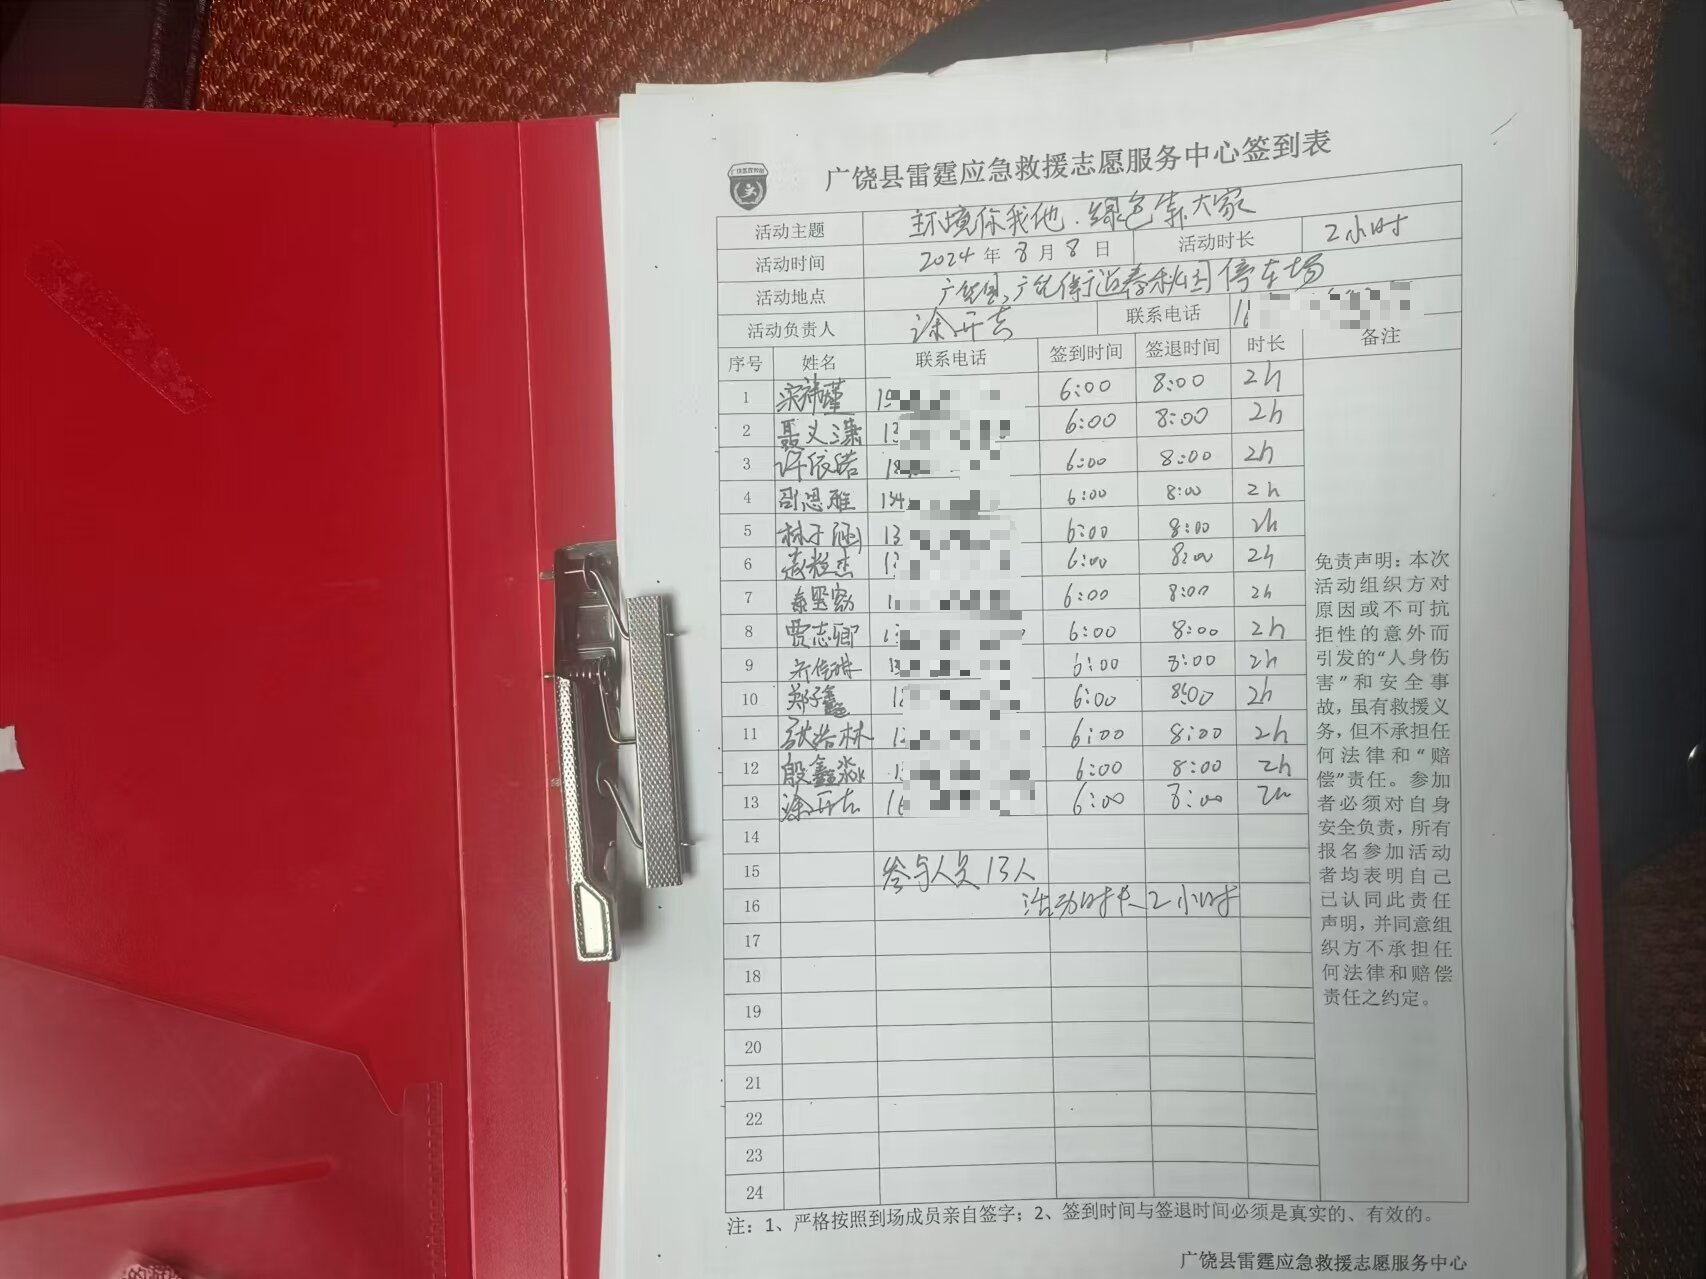 广饶县雷霆应急救援志愿服务中心签到表
活动主题 环境你我他.绿色靠大家
活动时间 2024年8月8日 活动时长 2小时
活动地点 停车场
活动负责人 涂开吉 联系电话 1
序号 姓名 联系电话 签到时间 签退时间 时长 备注
1 6:00 8:00 2h
2 聂义潇 13 6:00 8:00 2h
3 许依诺 18 6:00 8:00 2h
4 思雅 6:00 8:00 2h
5 林子涵 13 6:00 8:00 2h
6 6:00 8:00 2h
7 6:00 8:00 2h
8 贾志卿 6:00 8:00 2h
9 6:00 8:00 2h
10 郑子鑫 6:00 8:00 2h
11 张浩林 6:00 8:00 2h
12 殷鑫淼 6:00 8:00 2h
13 涂开吉 6:00 8:00 2h
14
15 参与人员13人
16 活动时长2小时
17
18
19
20
21
22
23
24
免责声明：本次
活动组织方对
原因或不可抗
拒性的意外而
引发的“人身伤
害”和安全事
故，虽有救援义
务，但不承担任
何法律和“赔
偿”责任。参加
者必须对自身
安全负责，所有
报名参加活动
者均表明自己
已认同此责任
声明，并同意组
织方不承担任
何法律和赔偿
责任之约定。
注：1、严格按照到场成员亲自签字；2、签到时间与签退时间必须是真实的、有效的。
广饶县雷霆应急救援志愿服务中心